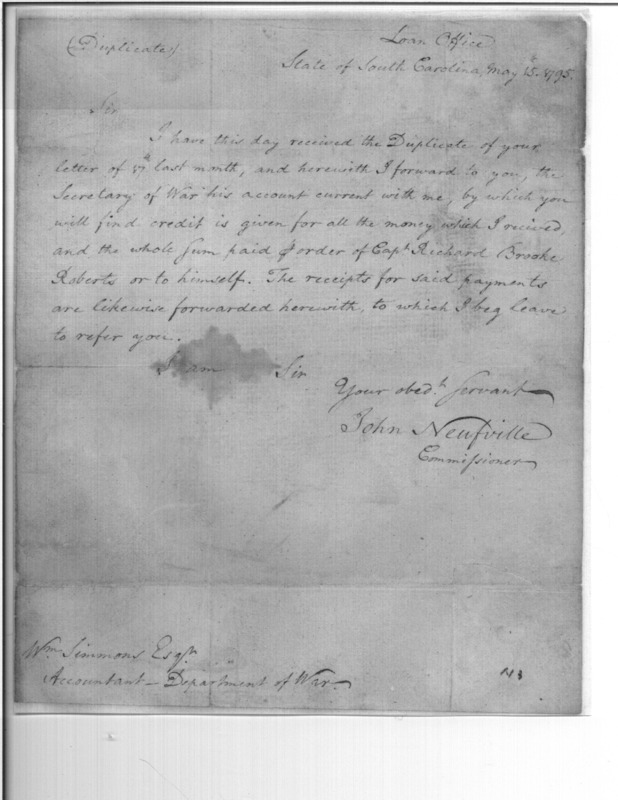 (Duplicate)
Loan Office
State of South Carolina, May 15th 1795.
Sir
I have this day received the Duplicate of your
letter of 17th last month, and herewith I forward to you, the
Secretary of War his account current with me, by which you
will find credit is given for all the money which I recived,
and the whole sum paid ⅌ order of Capth Richard Brooke
Roberts or to himself. The receipts for said payments
are likewise forwarded herewith, to which I beg leave
to refer you.
I am Sir
Your obedth Servant
John Neufville
Commissioner
Wm Simmons Esqr
Accountant - Department of War.